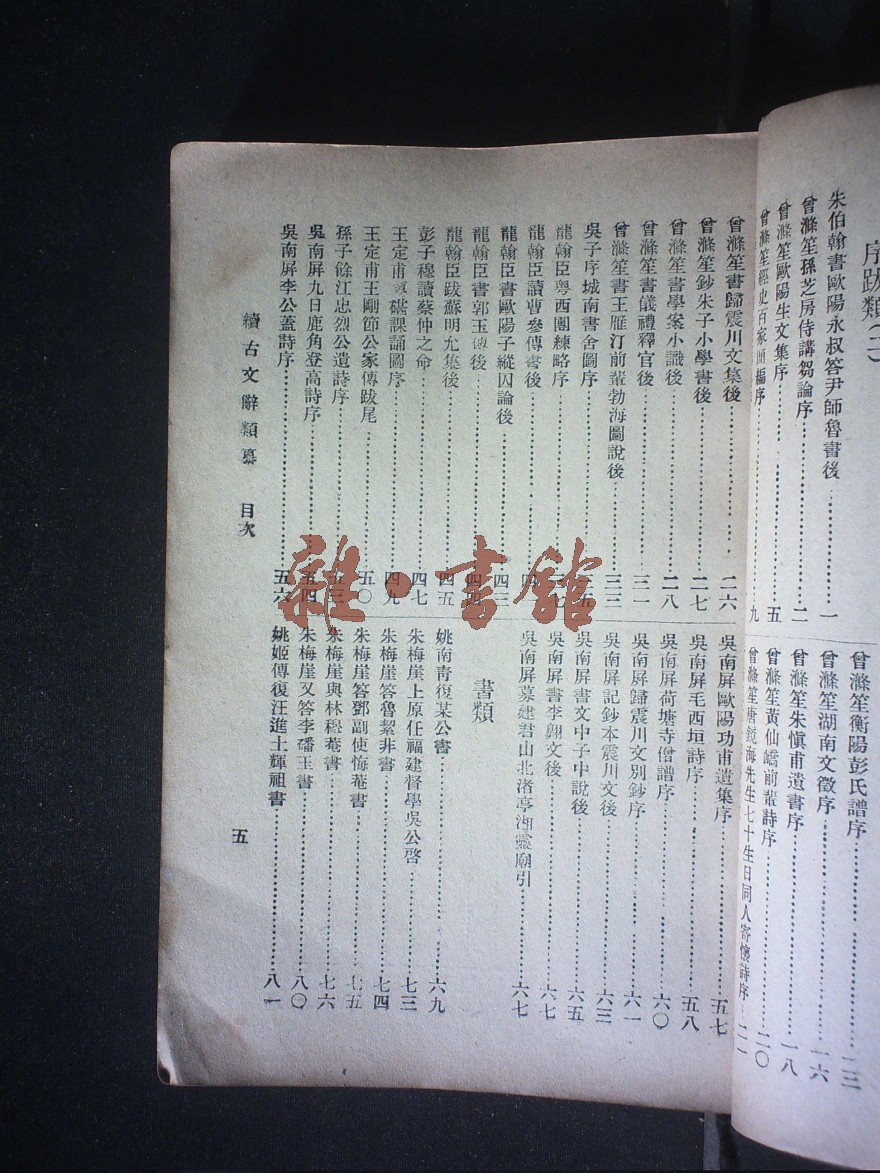 序跋類(二)
朱伯翰書歐陽永叔答尹師魯書後…………一
曾滌笙孫芝房侍講芻論序…………二
曾滌笙歐陽生文集序…………五
曾滌笙經史百家簡編序…………九
曾滌笙衡陽彭氏譜序…………一三
曾滌笙湖南文徵序…………一六
曾滌笙朱愼甫遺書序…………一八
曾滌笙黃仙嶠前輩詩序…………二〇
曾滌笙唐鏡海先生七十生日同人寄懷詩序…二二
曾滌笙書歸震川文集後…………二六
曾滌笙鈔朱子小學書後…………二七
曾滌笙書學案小識後…………二八
曾滌笙書儀禮釋官後…………三一
曾滌笙書王雁汀前輩勃海圖說後…………三三
吳子序城南書舍圖序…………三五
龍翰臣粵西團練略序…………三七
龍翰臣讀曹參傳書後…………
龍翰臣書歐陽子縱囚論後…………四三
龍翰臣書郭玉傳後…………四四
龍翰臣跋蘇明允集後…………四五
彭子穆讀蔡仲之命…………四七
王定甫 碪課誦圖序…………四九
王定甫王剛節公家傳跋尾…………五〇
孫子餘江忠烈公遺詩序…………五三
吳南屏九日鹿角登高詩序…………五四
吳南屏李公蓋詩序…………五六
吳南屏歐陽功甫遺集序…………五七
吳南屏毛西垣詩序…………五八
吳南屏荷塘寺僧譜序…………六〇
吳南屏歸震川文別鈔序…………六一
吳南屏記鈔本震川文後…………六三
吳南屏書文中子中說後…………六五
吳南屏書李翱文後…………六七
吳南屏募建君山北渚亭湘靈廟引…………六七
書類
姚南靑復某公書…………六九
朱梅崖上原任福建督學吳公啓…………七三
朱梅崖答魯絜非書…………七四
朱梅崖答鄧副使悔菴書…………七五
朱梅崖與林穆菴書…………七六
朱梅崖又答李磻玉書…………八〇
姚姬傳復汪進士輝祖書…………八一
續古文辭類纂　目次
五
雜·書館